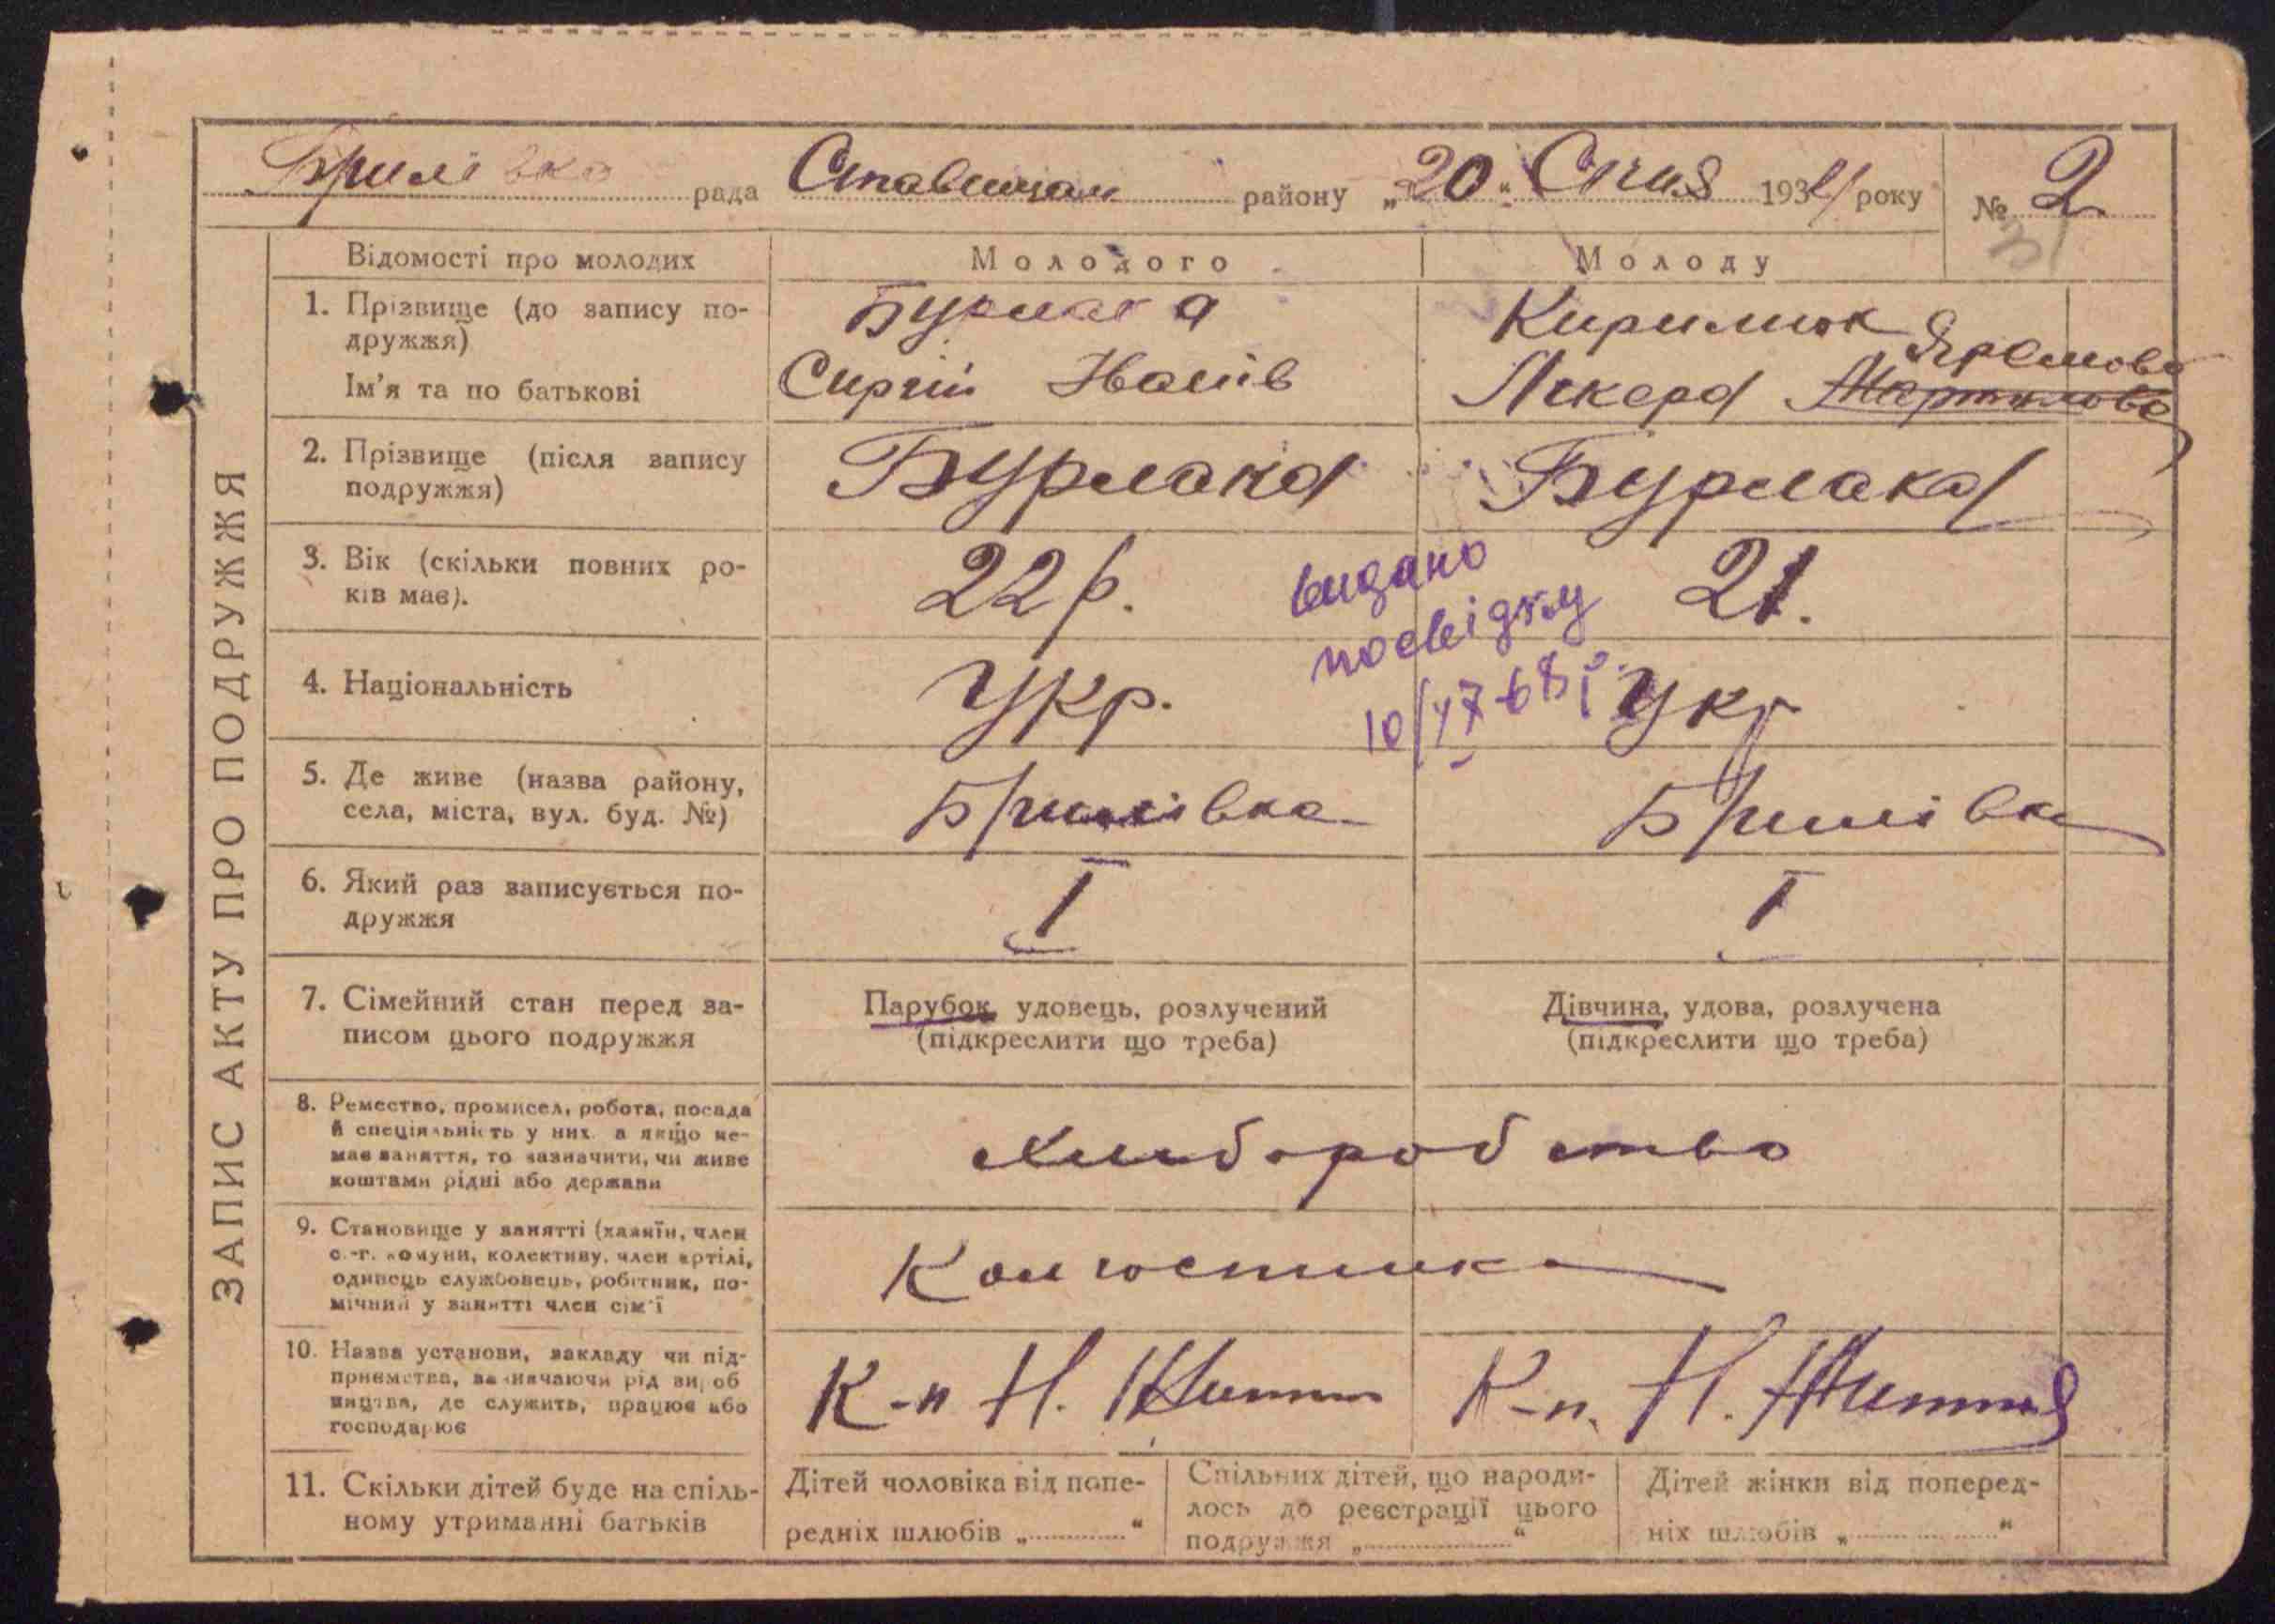 Брилівка рада Ставищан району „20“ Січня 1934 року № 2
ЗАПИС АКТУ ПРО ПОДРУЖЖЯ
Відомості про молодих Молодого Молоду
1. Прізвище (до запису по-
дружжя)
Бурлака Кирилюк
Ім'я та по батькові
Сиргій Іванів Яремова
Мартинова
2. Прізвище (після запису
подружжя)
Бурлака Бурлака
3. Вік (скільки повних ро-
ків має).
22 р. 21.
видано
посвідку
4. Національність
Укр. Укр
5. Де живе (назва району,
села, міста, вул. буд. №)
Брилівка Брилівка
6. Який раз записується по-
дружжя
I I
7. Сімейний стан перед за-
писом цього подружжя
Парубок, удовець, розлучений
(підкреслити що треба)
Дівчина, удова, розлучена
(підкреслити що треба)
8. Ремество, промисел, робота, посада
й спеціяльність у них, а якщо не-
має заняття, то зазначити, чи живе
коштами рідні або держави
Хліборобство
9. Становище у занятті (хазяїн, член
с.-г. комуни, колективу, член артілі,
одинець службовець, робітник, по-
мічний у занятті член сім'ї
10. Назва установи, закладу чи під-
приємства, зазначаючи рід вироб
ництва, де служить, працює або
господарює
К-п Н. Життя К-п. Н. Життя
11. Скільки дітей буде на спіль-
ному утриманні батьків
Дітей чоловіка від попе-
редніх шлюбів „ “
Спільних дітей, що народи-
лось до реєстрації цього
подружжя „ “
Дітей жінки від поперед-
ніх шлюбів „ “